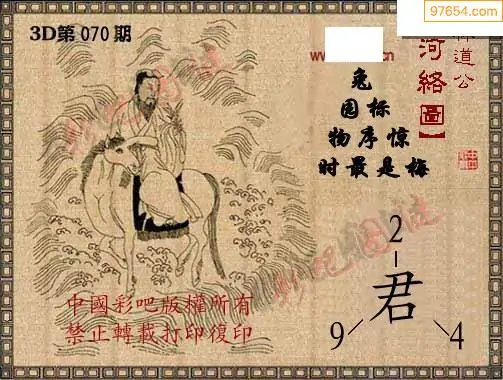 97654.com
3D第070期
道公
河絡圖】
兔
园标
物序惊
时最是梅
2
君
9
4
中國彩吧版權所有
禁止轉載打印復印